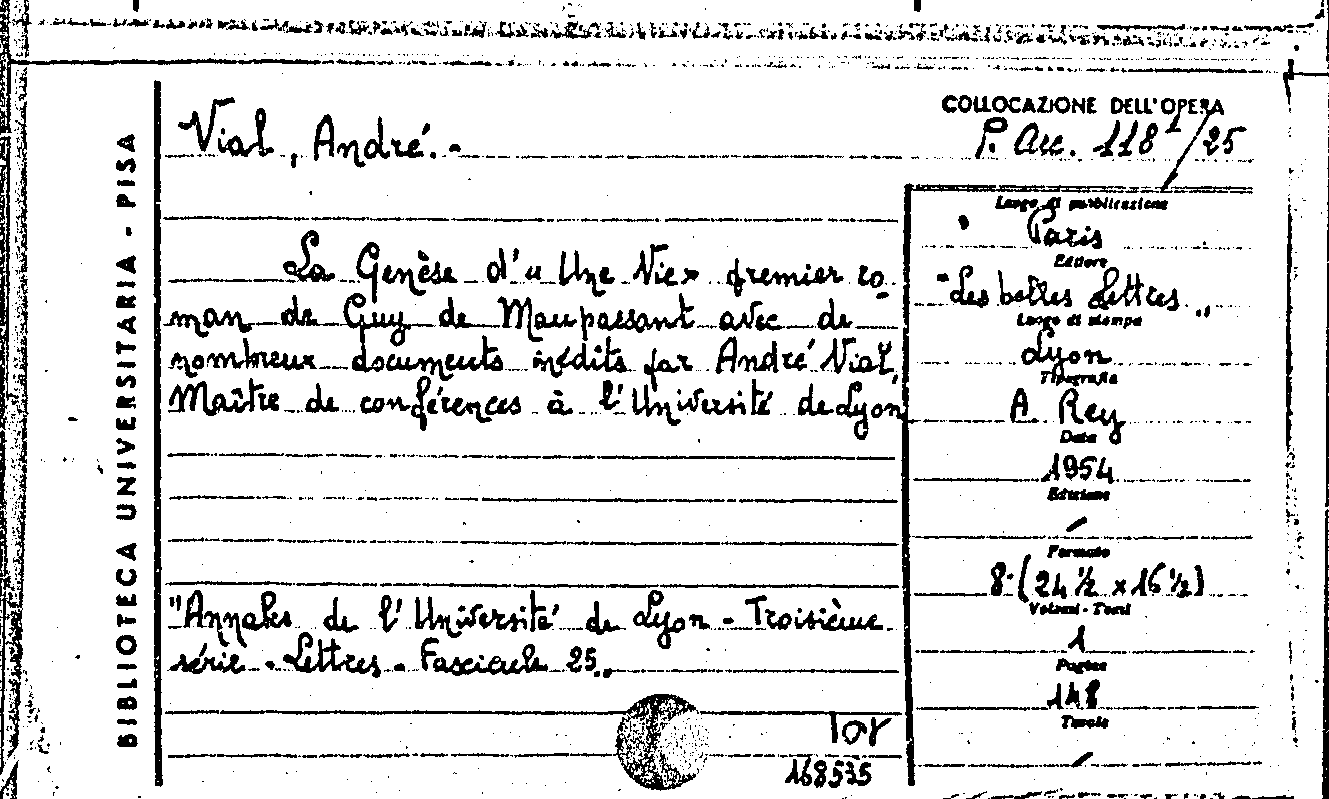 BIBLIOTECA UNIVERSITARIA - PISA
COLLOCAZIONE DELL'OPERA
P. Acc. 118¹/25
Vial, André.-
La Genèse d'« Une Vie» premier ro-
man de Guy de Maupassant avec de
nombreux documents inédits par André Vial,
Maître de conférences à l'Université de Lyon
"Annales de l'Université de Lyon - Troisième
série - Lettres - Fascicule 25„
168535
Luogo di pubblicazione
Paris
Editore
"Les belles lettres„
Luogo di stampa
Lyon
Tipografia
A. Rey
Data
1954
Edizione
/
Formato
8° (24 ½ x 16 ½)
Volumi - Tomi
1
Pagine
148
Tavole
/